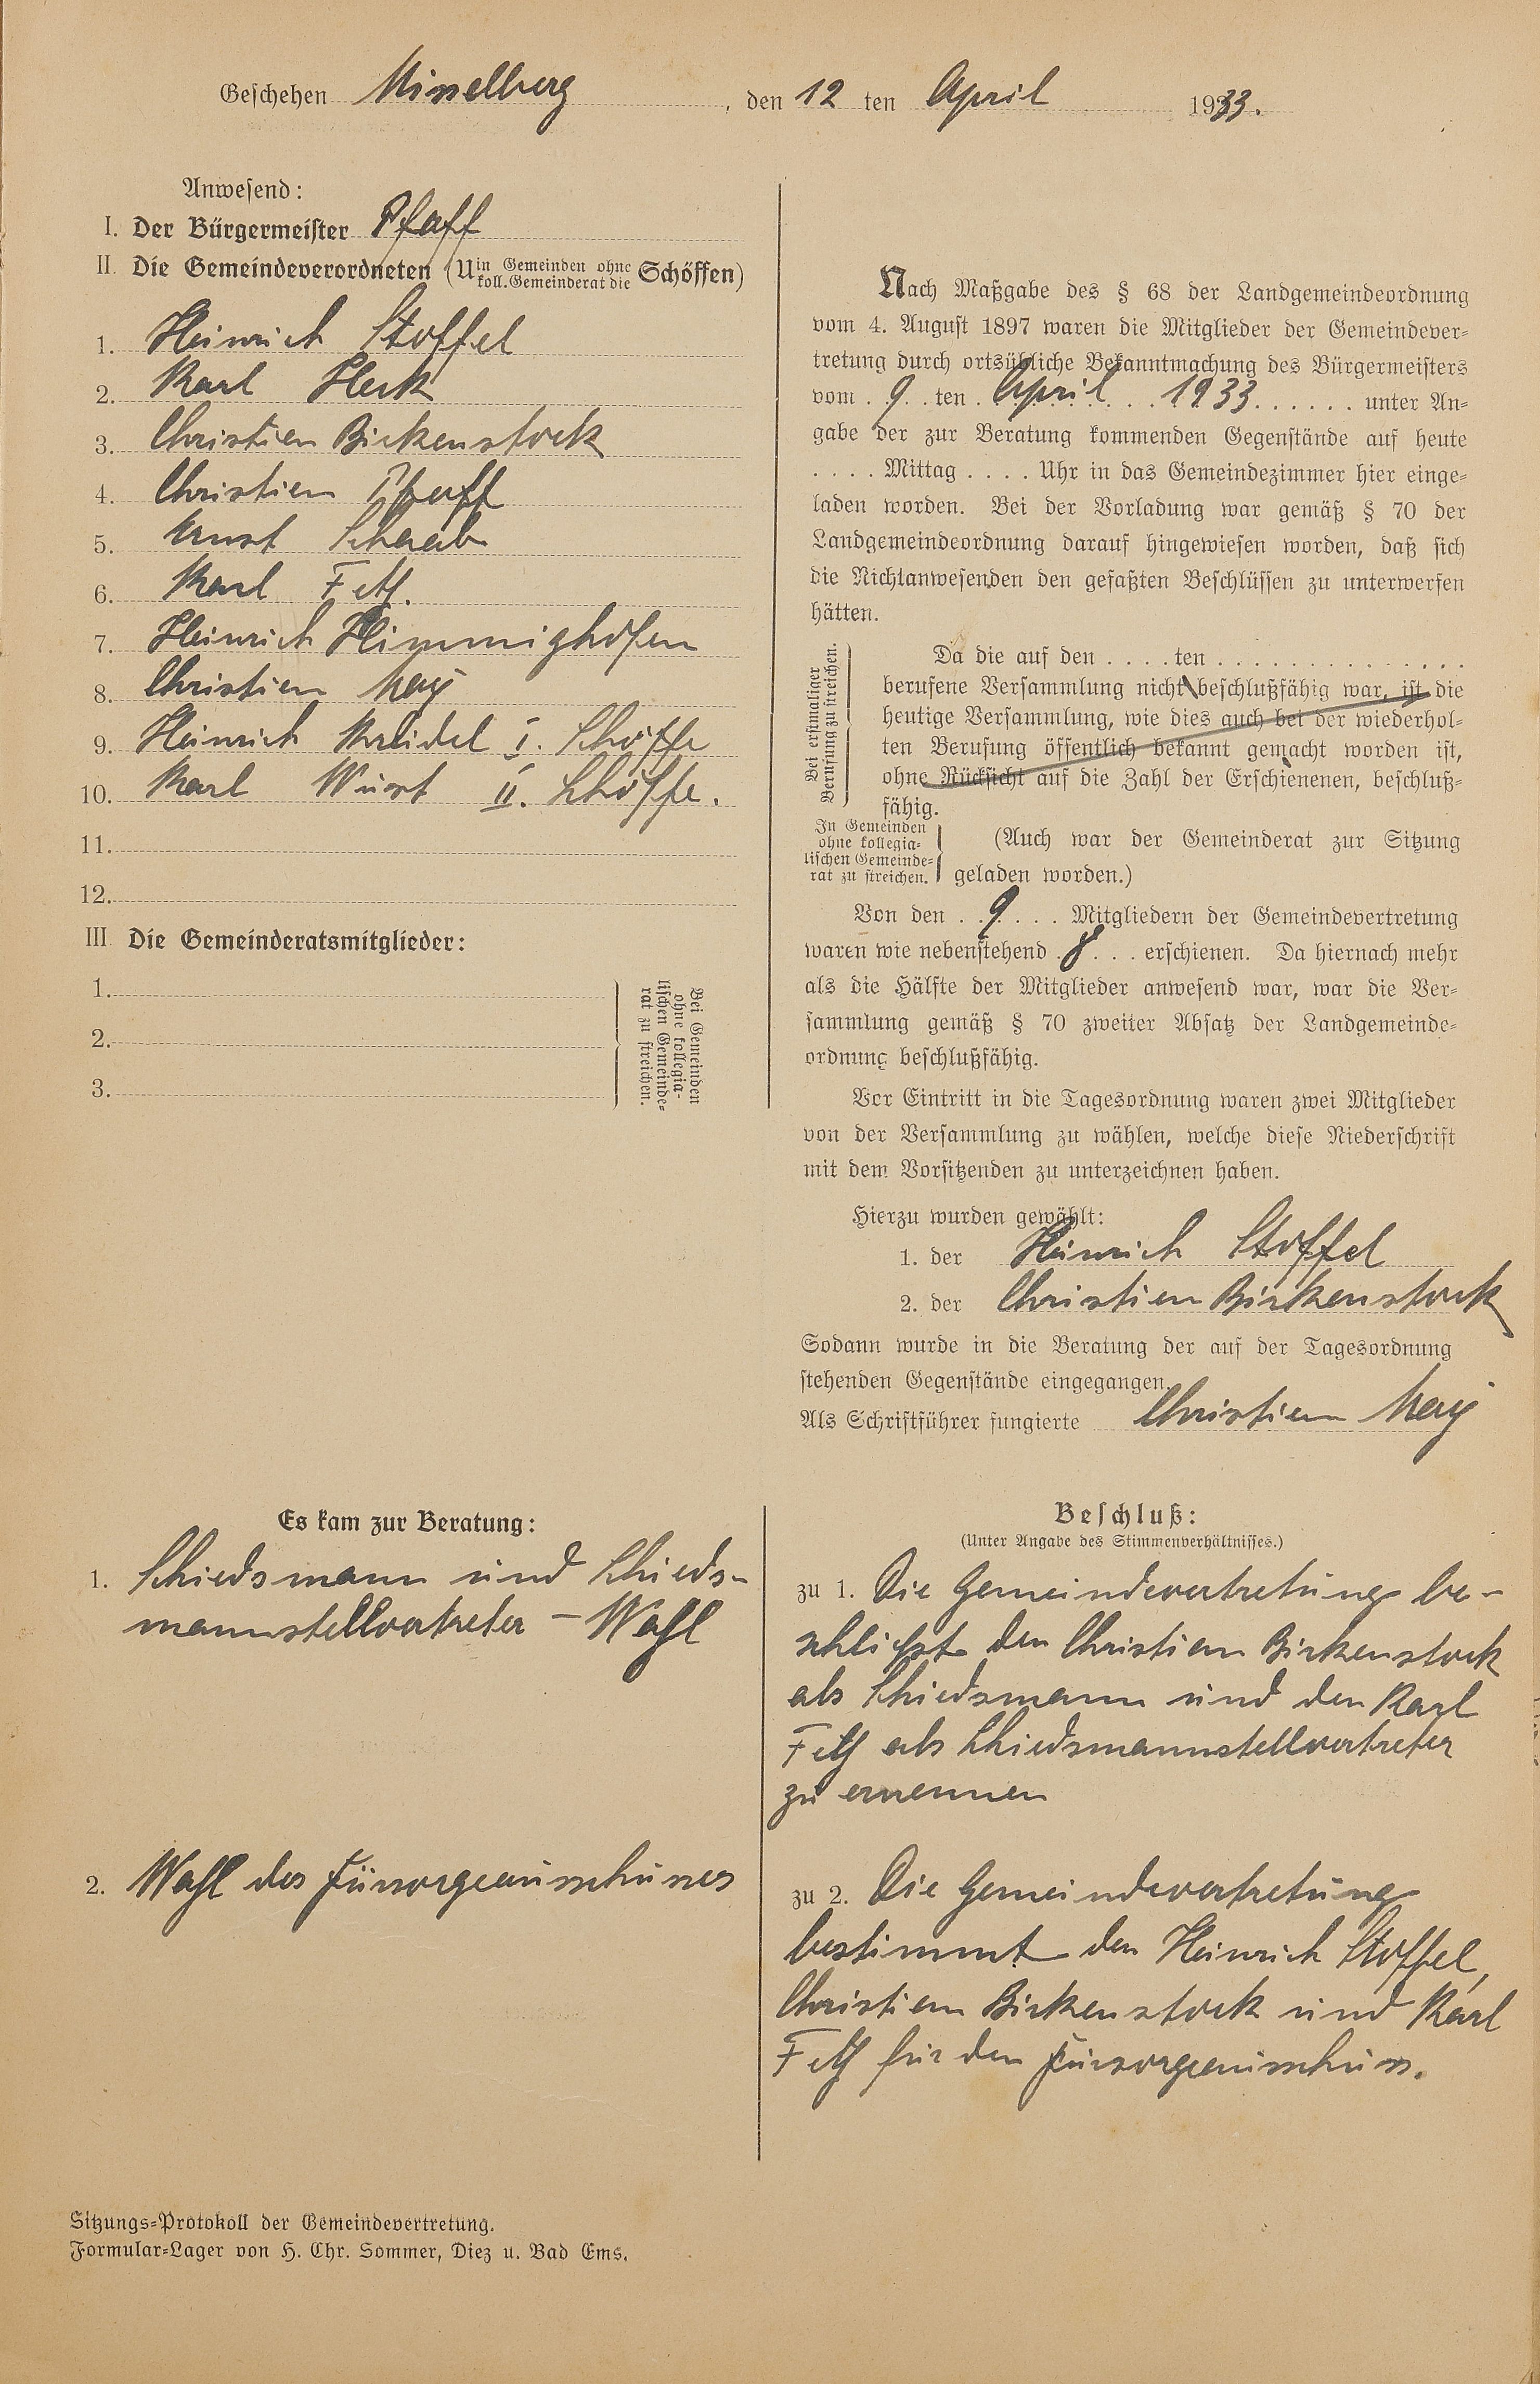 Geschehen Misselberg, den 12 ten April 1933.
Anwesend:
I. Der Bürgermeister Pfaff
II. Die Gemeindeverordneten (U in Gemeinden ohne koll. Gemeinderat die Schöffen)
1. Heinrich Stoffel
2. Karl Herk
3. Christian Birkenstock
4. Christian Pfaff
5. Ernst Schaab
6. Karl Feth.
7. Heinrich Himmighofen
8. Christian May
9. Heinrich Kreidel I. Schöffe
10. Karl Wüst II. Schöffe.
11.
12.
III Die Gemeinderatsmitglieder:
1.
2.
3.
Bei Gemeinden
ohne kollegia-
lischen Gemeinde-
rat zu streichen.
Nach Maßgabe des § 68 der Landgemeindeordnung
vom 4. August 1897 waren die Mitglieder der Gemeindever-
tretung durch ortsübliche Bekanntmachung des Bürgermeisters
vom . 9 . . ten . April . . . 1933 . . . . . . unter An-
gabe der zur Beratung kommenden Gegenstände auf heute
. . . . Mittag . . . . Uhr in das Gemeindezimmer hier einge-
laden worden. Bei der Vorladung war gemäß § 70 der
Landgemeindeordnung darauf hingewiesen worden, daß sich
die Nichtanwesenden den gefaßten Beschlüssen zu unterwerfen
hätten.
Bei erstmaliger
Berufung zu streichen.
Da die auf den . . . . ten . . . . . . . . . . . . . .
berufene Versammlung nicht beschlußfähig war, ist die
heutige Versammlung, wie dies auch bei der wiederhol-
ten Berufung öffentlich bekannt gemacht worden ist,
ohne Rücksicht auf die Zahl der Erschienenen, beschluß-
fähig.
In Gemeinden
ohne kollegia-
lischen Gemeinde-
rat zu streichen.
(Auch war der Gemeinderat zur Sitzung
geladen worden.)
Von den . . 9 . . . Mitgliedern der Gemeindevertretung
waren wie nebenstehend . 8 . . . erschienen. Da hiernach mehr
als die Hälfte der Mitglieder anwesend war, war die Ver-
sammlung gemäß § 70 zweiter Absatz der Landgemeinde-
ordnung beschlußfähig.
Vor Eintritt in die Tagesordnung waren zwei Mitglieder
von der Versammlung zu wählen, welche diese Niederschrift
mit dem Vorsitzenden zu unterzeichnen haben.
Hierzu wurden gewählt:
1. der Heinrich Stoffel
2. der Christian Birkenstock
Sodann wurde in die Beratung der auf der Tagesordnung
stehenden Gegenstände eingegangen.
Als Schriftführer fungierte Christian May
Es kam zur Beratung:
1. Schiedsmann und Schieds-
mannstellvertreter – Wahl
2. Wahl des Fürsorgeausschusses
Beschluß:
(Unter Angabe des Stimmenverhältnisses.)
zu 1. Die Gemeindevertretung be-
schließt den Christian Birkenstock
als Schiedsmann und den Karl
Feth als Schiedsmannstellvertreter
zu ernennen
zu 2. Die Gemeindevertretung
bestimmt den Heinrich Stoffel,
Christian Birkenstock und Karl
Feth für den Fürsorgeausschuss.
Sitzungs-Protokoll der Gemeindevertretung.
Formular-Lager von H. Chr. Sommer, Diez u. Bad Ems.